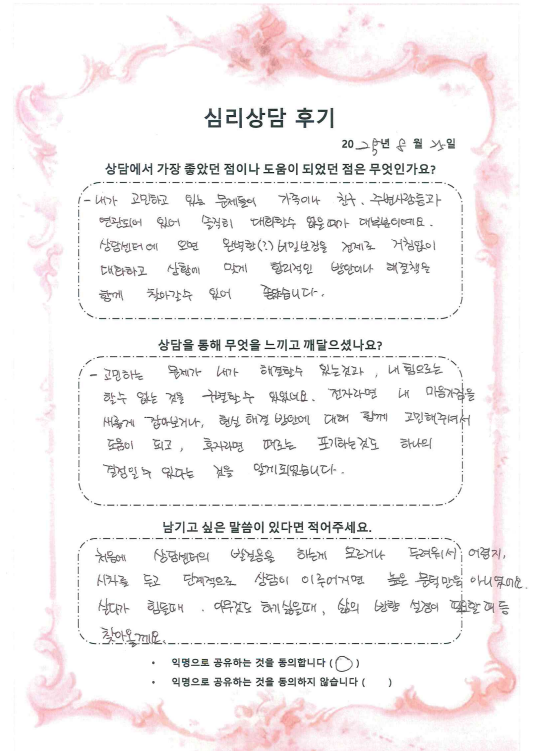 심리상담 후기
20 25년 8 월 25일
상담에서 가장 좋았던 점이나 도움이 되었던 점은 무엇인가요?
- 내가 고민하고 있는 문제들이 가족이나 친구, 주변사람들과
연관되어 있어 솔직히 대화할수 없을때가 대부분이에요.
상담센터에 오면 완벽한(?) 비밀보장을 전제로 거침없이
대화하고 상황에 맞게 합리적인 방안이나 해결책을
함께 찾아갈수 있어 좋았습니다.
상담을 통해 무엇을 느끼고 깨달으셨나요?
- 고민하는 문제가 내가 해결할수 있는것과, 내 힘으로는
할수 없는 것을 구별할수 있었어요. 전자라면 내 마음가짐을
새롭게 잡아보거나, 현실 해결 방안에 대해 함께 고민해주셔서
도움이 되고, 후자라면 때로는 포기하는것도 하나의
결정일 수 있다는 것을 알게되었습니다.
남기고 싶은 말씀이 있다면 적어주세요.
처음에 상담센터의 발걸음을 하는게 모르거나 두려워서 어렵지,
시작을 두고 단계적으로 상담이 이루어지면 높은 문턱만은 아니었어요.
살다가 힘들때. 아무것도 하기싫을때, 삶의 방향 설정이 필요할 때 등
찾아올게요.
• 익명으로 공유하는 것을 동의합니다 ( ○ )
• 익명으로 공유하는 것을 동의하지 않습니다 ( )